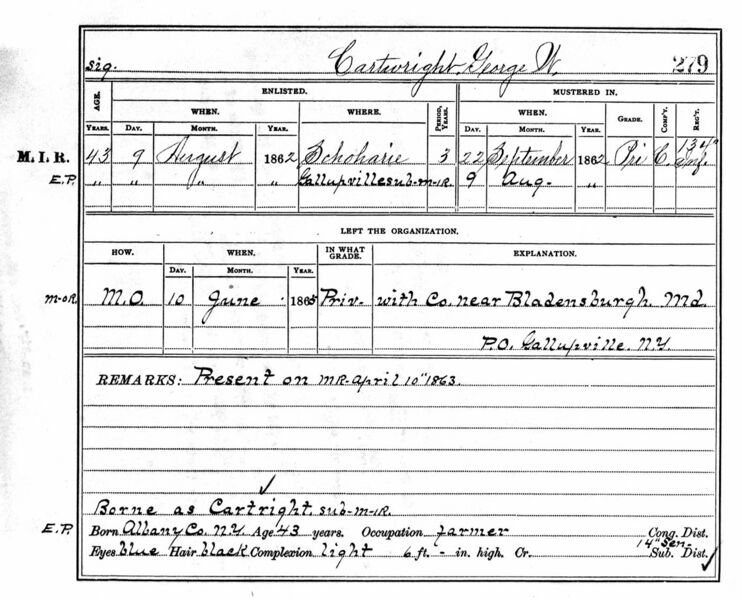 sig. Cartwright, George W. 279
ENLISTED. MUSTERED IN.
AGE. WHEN. WHERE. PERIOD, YEARS. WHEN. GRADE. COMP'Y. REG'T.
YEARS. DAY. MONTH. YEAR. DAY. MONTH. YEAR.
M. I. R. 43 9 August 1862 Schoharie 3 22 September 1862 Pri C. 134" Inf.
E.P. " " " " Gallupville sub-m-I.R. 9 Aug- "
LEFT THE ORGANIZATION.
HOW. WHEN. IN WHAT GRADE. EXPLANATION.
DAY. MONTH. YEAR.
M-OR M.O. 10 June 1865 Priv- with Co. near Bladensburgh. Md.
P.O. Gallupville. N.Y.
REMARKS: Present on MR-April 10"1863.
Borne as Cartright sub-m-I.R.
E.P. Born Albany Co. N.Y. Age 43 years. Occupation farmer Cong. Dist.
14" Sen-
Eyes blue Hair black Complexion light 6 ft. - in. high. Cr. Sub. Dist.